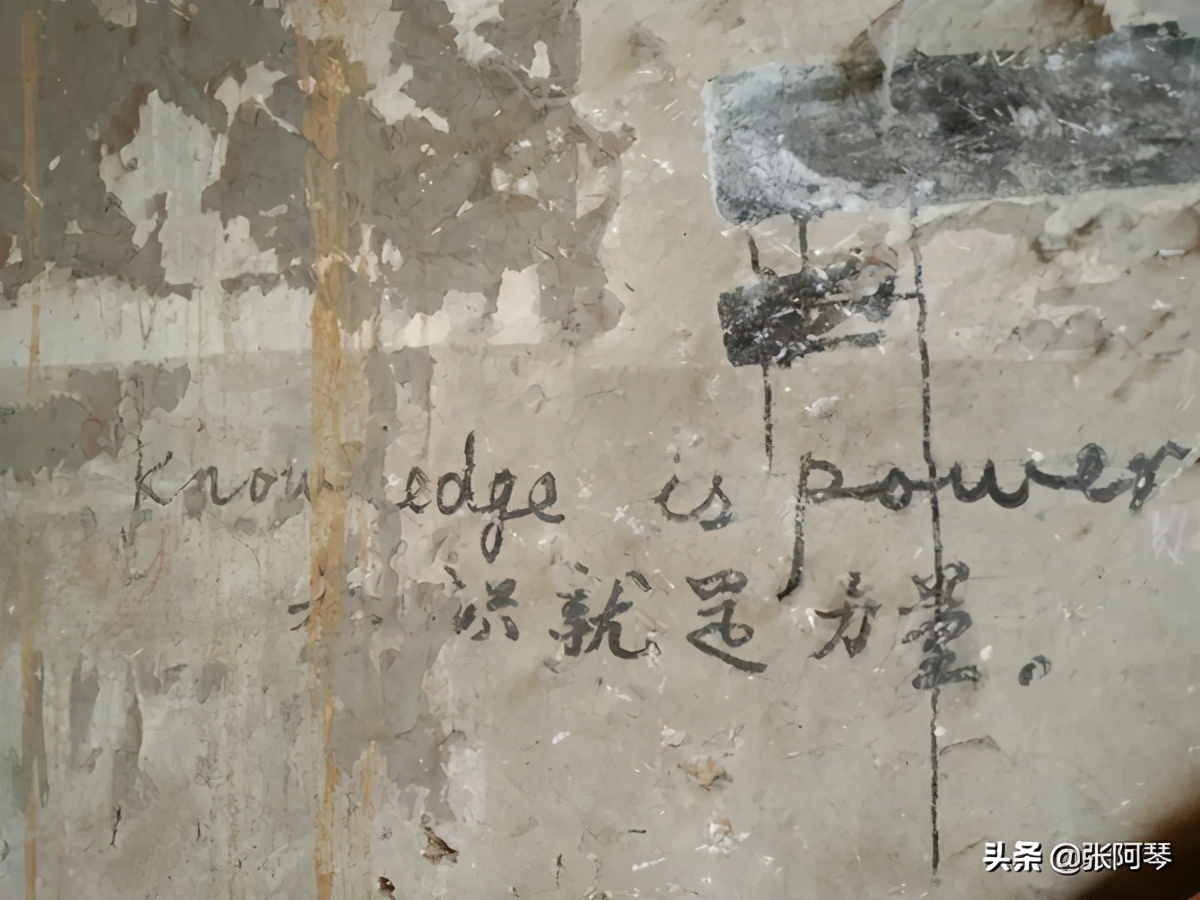 Knowledge is power
知识就是力量。
头条 @张阿琴